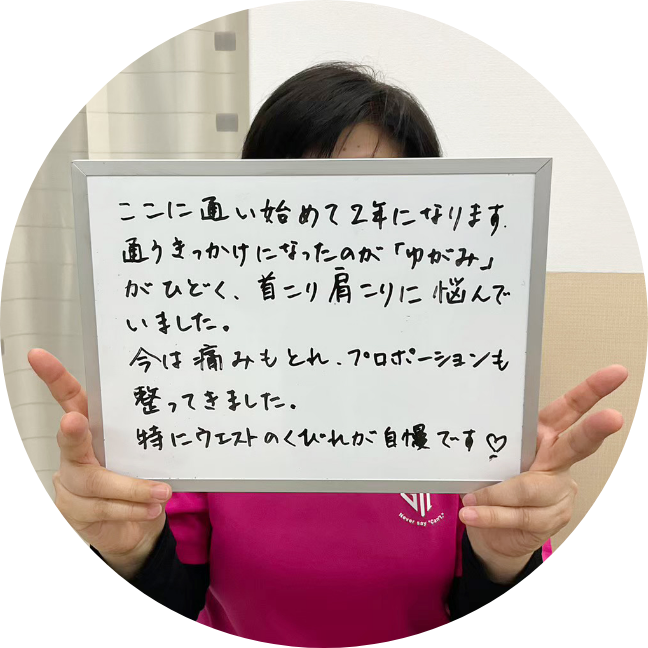 ここに通い始めて2年になります.
通うきっかけになったのが「ゆがみ」
がひどく、首こり肩こりに悩んで
いました。
今は痛みもとれ、プロポーションも
整ってきました。
特にウエストのくびれが自慢です♡
Never say "Can't."